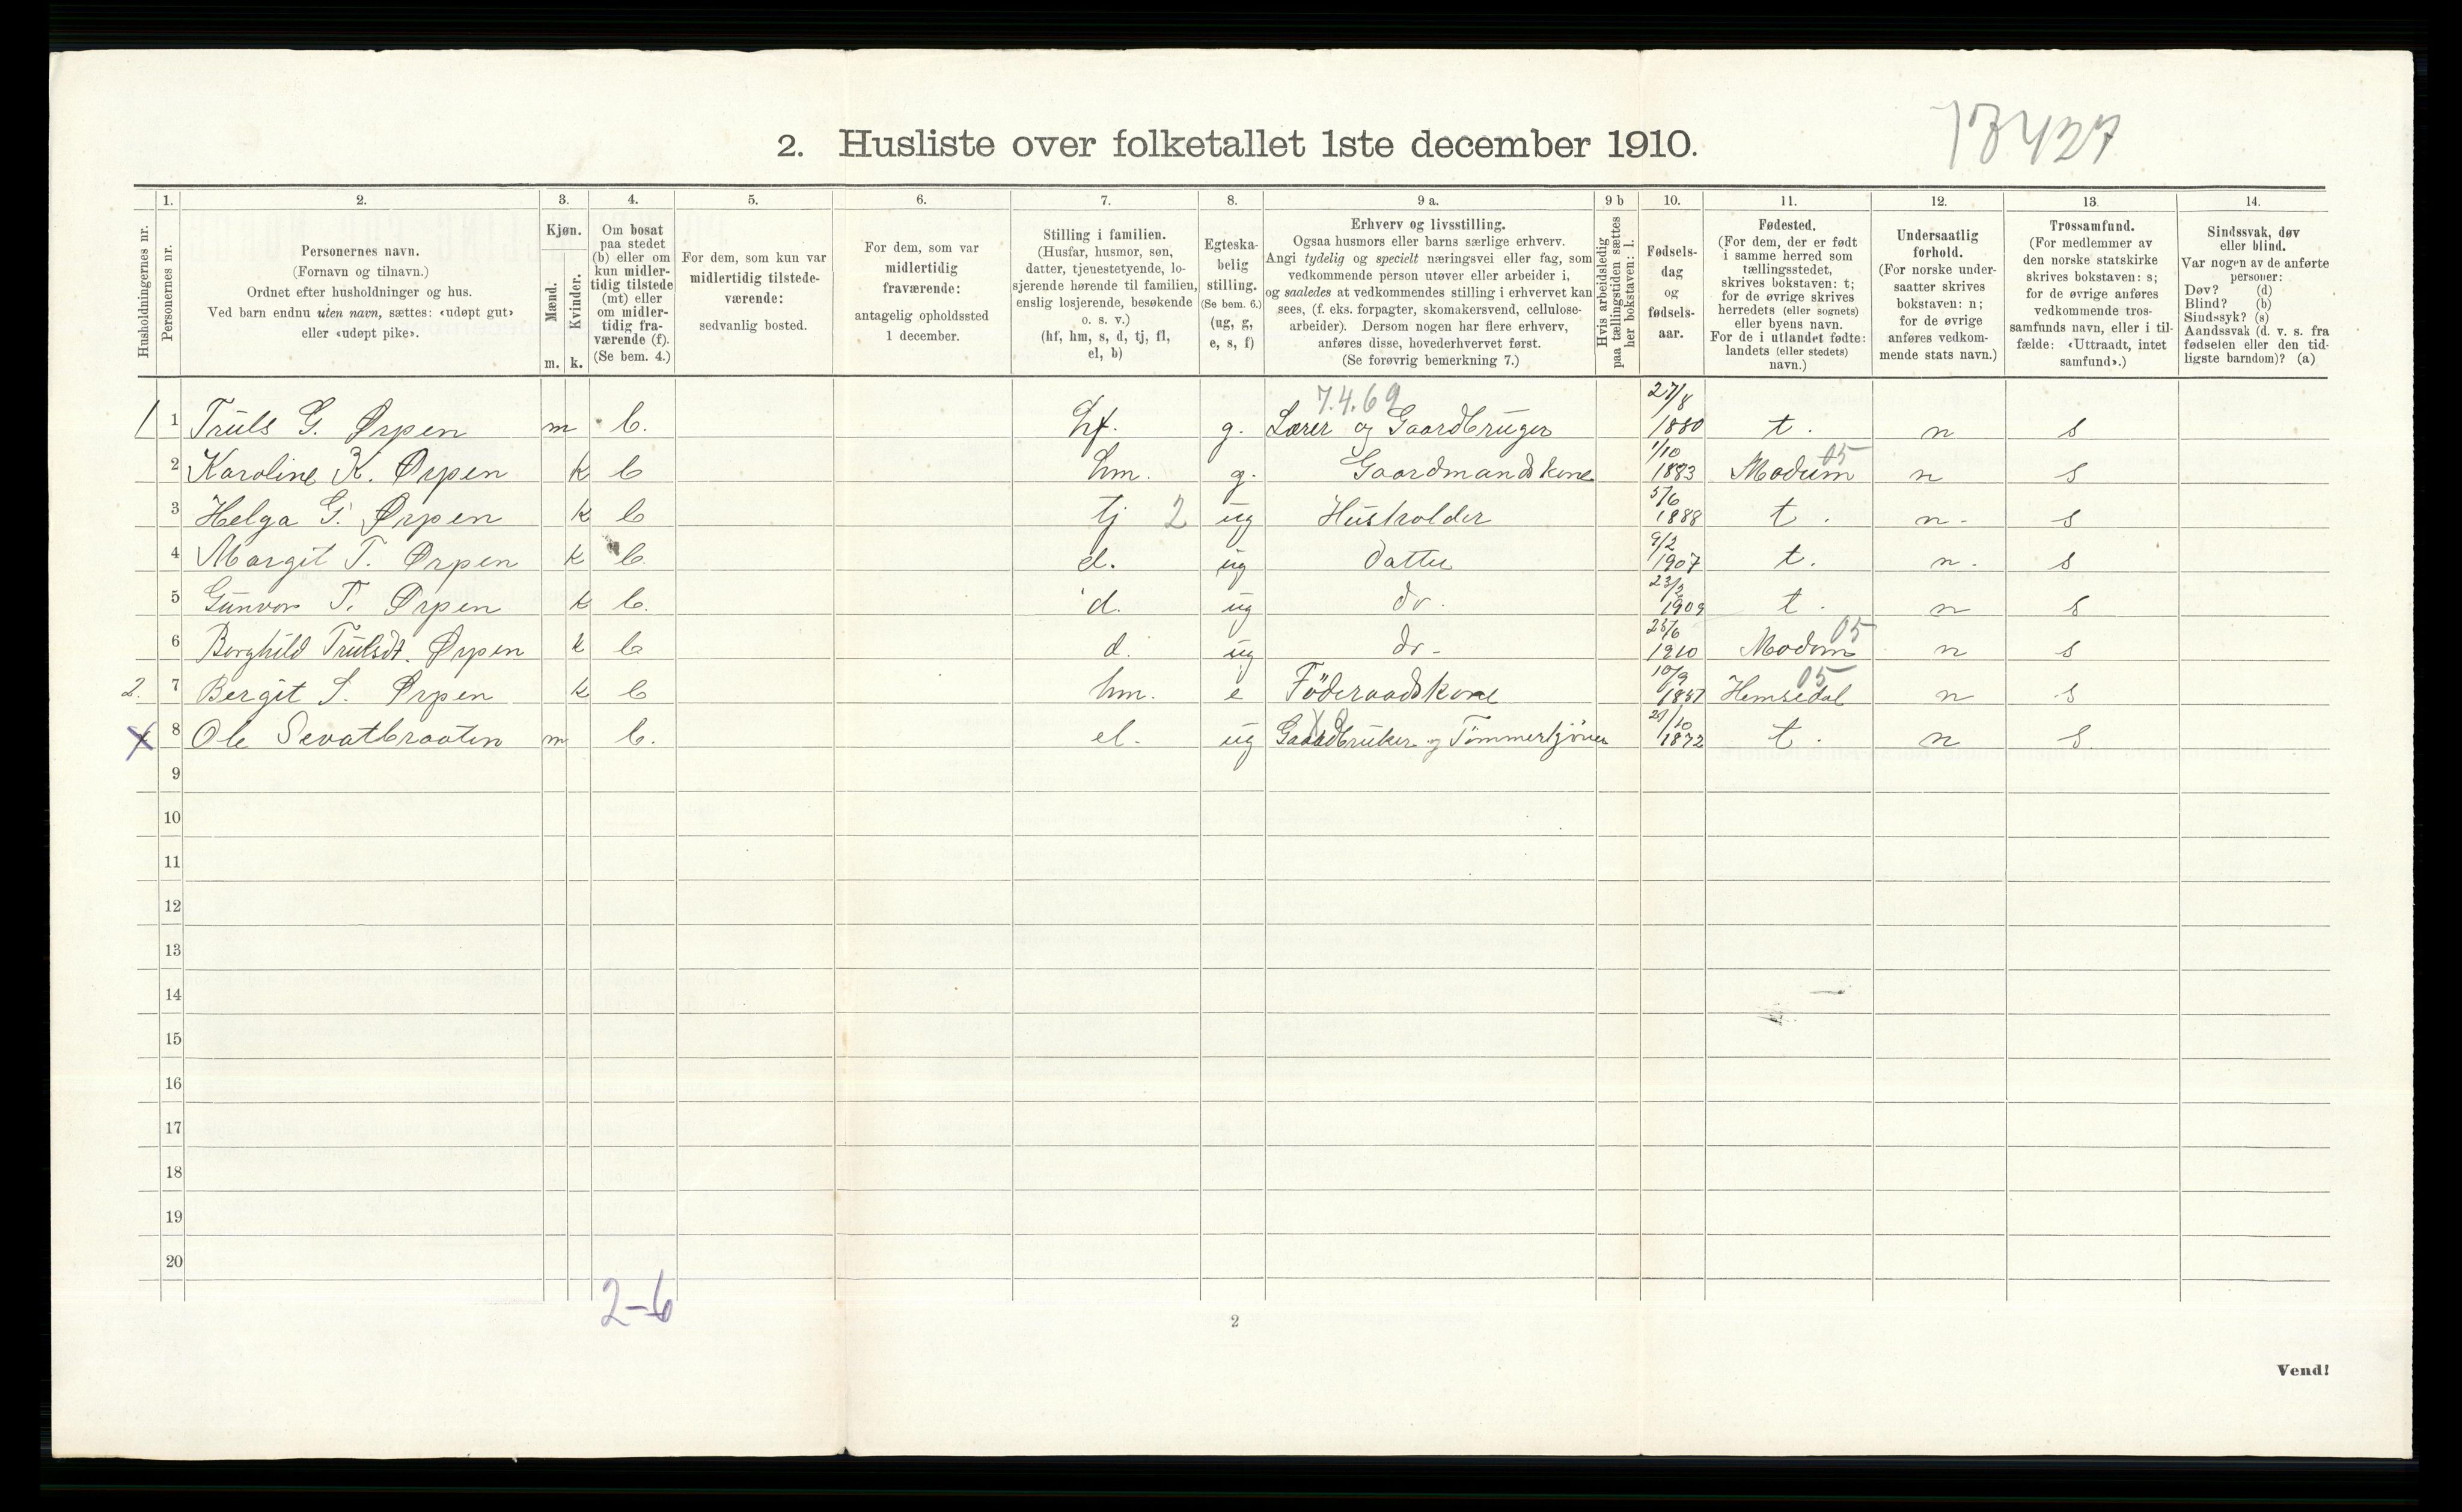 13427
2. Husliste over folketallet 1ste december 1910.
Husholdningernes nr.
1. Personernes nr.
2. Personernes navn.
(Fornavn og tilnavn.)
Ordnet efter husholdninger og hus.
Ved barn endnu uten navn, sættes: «udøpt gut»
eller «udøpt pike».
3. Kjøn.
Mænd. m.
Kvinder. k.
4. Om bosat
paa stedet
(b) eller om
kun midler-
tidig tilstede
(mt) eller
om midler-
tidig fra-
værende (f).
(Se bem. 4.)
5. For dem, som kun var
midlertidig tilstede-
værende:
sedvanlig bosted.
6. For dem, som var
midlertidig
fraværende:
antagelig opholdssted
1 december.
7. Stilling i familien.
(Husfar, husmor, søn,
datter, tjenestetyende, lo-
sjerende hørende til familien,
enslig losjerende, besøkende
o. s. v.)
(hf, hm, s, d, tj, fl,
el, b)
8. Egteska-
belig
stilling.
(Se bem. 6.)
(ug, g,
e, s, f)
9 a. Erhverv og livsstilling.
Ogsaa husmors eller barns særlige erhverv.
Angi tydelig og specielt næringsvei eller fag, som
vedkommende person utøver eller arbeider i,
og saaledes at vedkommendes stilling i erhvervet kan
sees, (f. eks. forpagter, skomakersvend, cellulose-
arbeider). Dersom nogen har flere erhverv,
anføres disse, hovederhvervet først.
(Se forøvrig bemerkning 7.)
9 b Hvis arbeidsledig
paa tællingstiden sættes
her bokstaven: l.
10. Fødsels-
dag
og
fødsels-
aar.
11. Fødested.
(For dem, der er født
i samme herred som
tællingsstedet,
skrives bokstaven: t;
for de øvrige skrives
herredets (eller sognets)
eller byens navn.
For de i utlandet fødte:
landets (eller stedets)
navn.)
12. Undersaatlig
forhold.
(For norske under-
saatter skrives
bokstaven: n;
for de øvrige
anføres vedkom-
mende stats navn.)
13. Trossamfund.
(For medlemmer av
den norske statskirke
skrives bokstaven: s;
for de øvrige anføres
vedkommende tros-
samfunds navn, eller i til-
fælde: «Uttraadt, intet
samfund».)
14. Sindssvak, døv
eller blind.
Var nogen av de anførte
personer:
Døv? (d)
Blind? (b)
Sindssyk? (s)
Aandssvak (d. v. s. fra
fødselen eller den tid-
ligste barndom)? (a)
7.4.69
1 1 Truls G. Ørpen m b. hf. g. Lærer og Gaardbruger 27/8 1880 t. n s
2 Karoline K. Ørpen k b hm. g. Gaardmandskone 1/10 1883 Modum 05 n s
3 Helga G. Ørpen k b tj 2 ug Husholder 5/6 1888 t. n. s
4 Margit T. Ørpen k b d. ug datter 9/2 1907 t. n. s
5 Gunvor T. Ørpen k b. d. ug do. 23/2 1909 t. n s
6 Borghild Trulsdt. Ørpen k b d. ug do - 25/6 1910 Modum 05 n s
2. 7 Bergit S. Ørpen k b hm. e Föderaadskone 10/9 Hemsedal 05 n s
x 8 Ole Sevatbraaten m b. el. ug Gaardbruker og Tömmerkjörer 1872 t. n s
9
10
11
12
13
14
15
16
17
18
19
20
2-6
2
Vend!